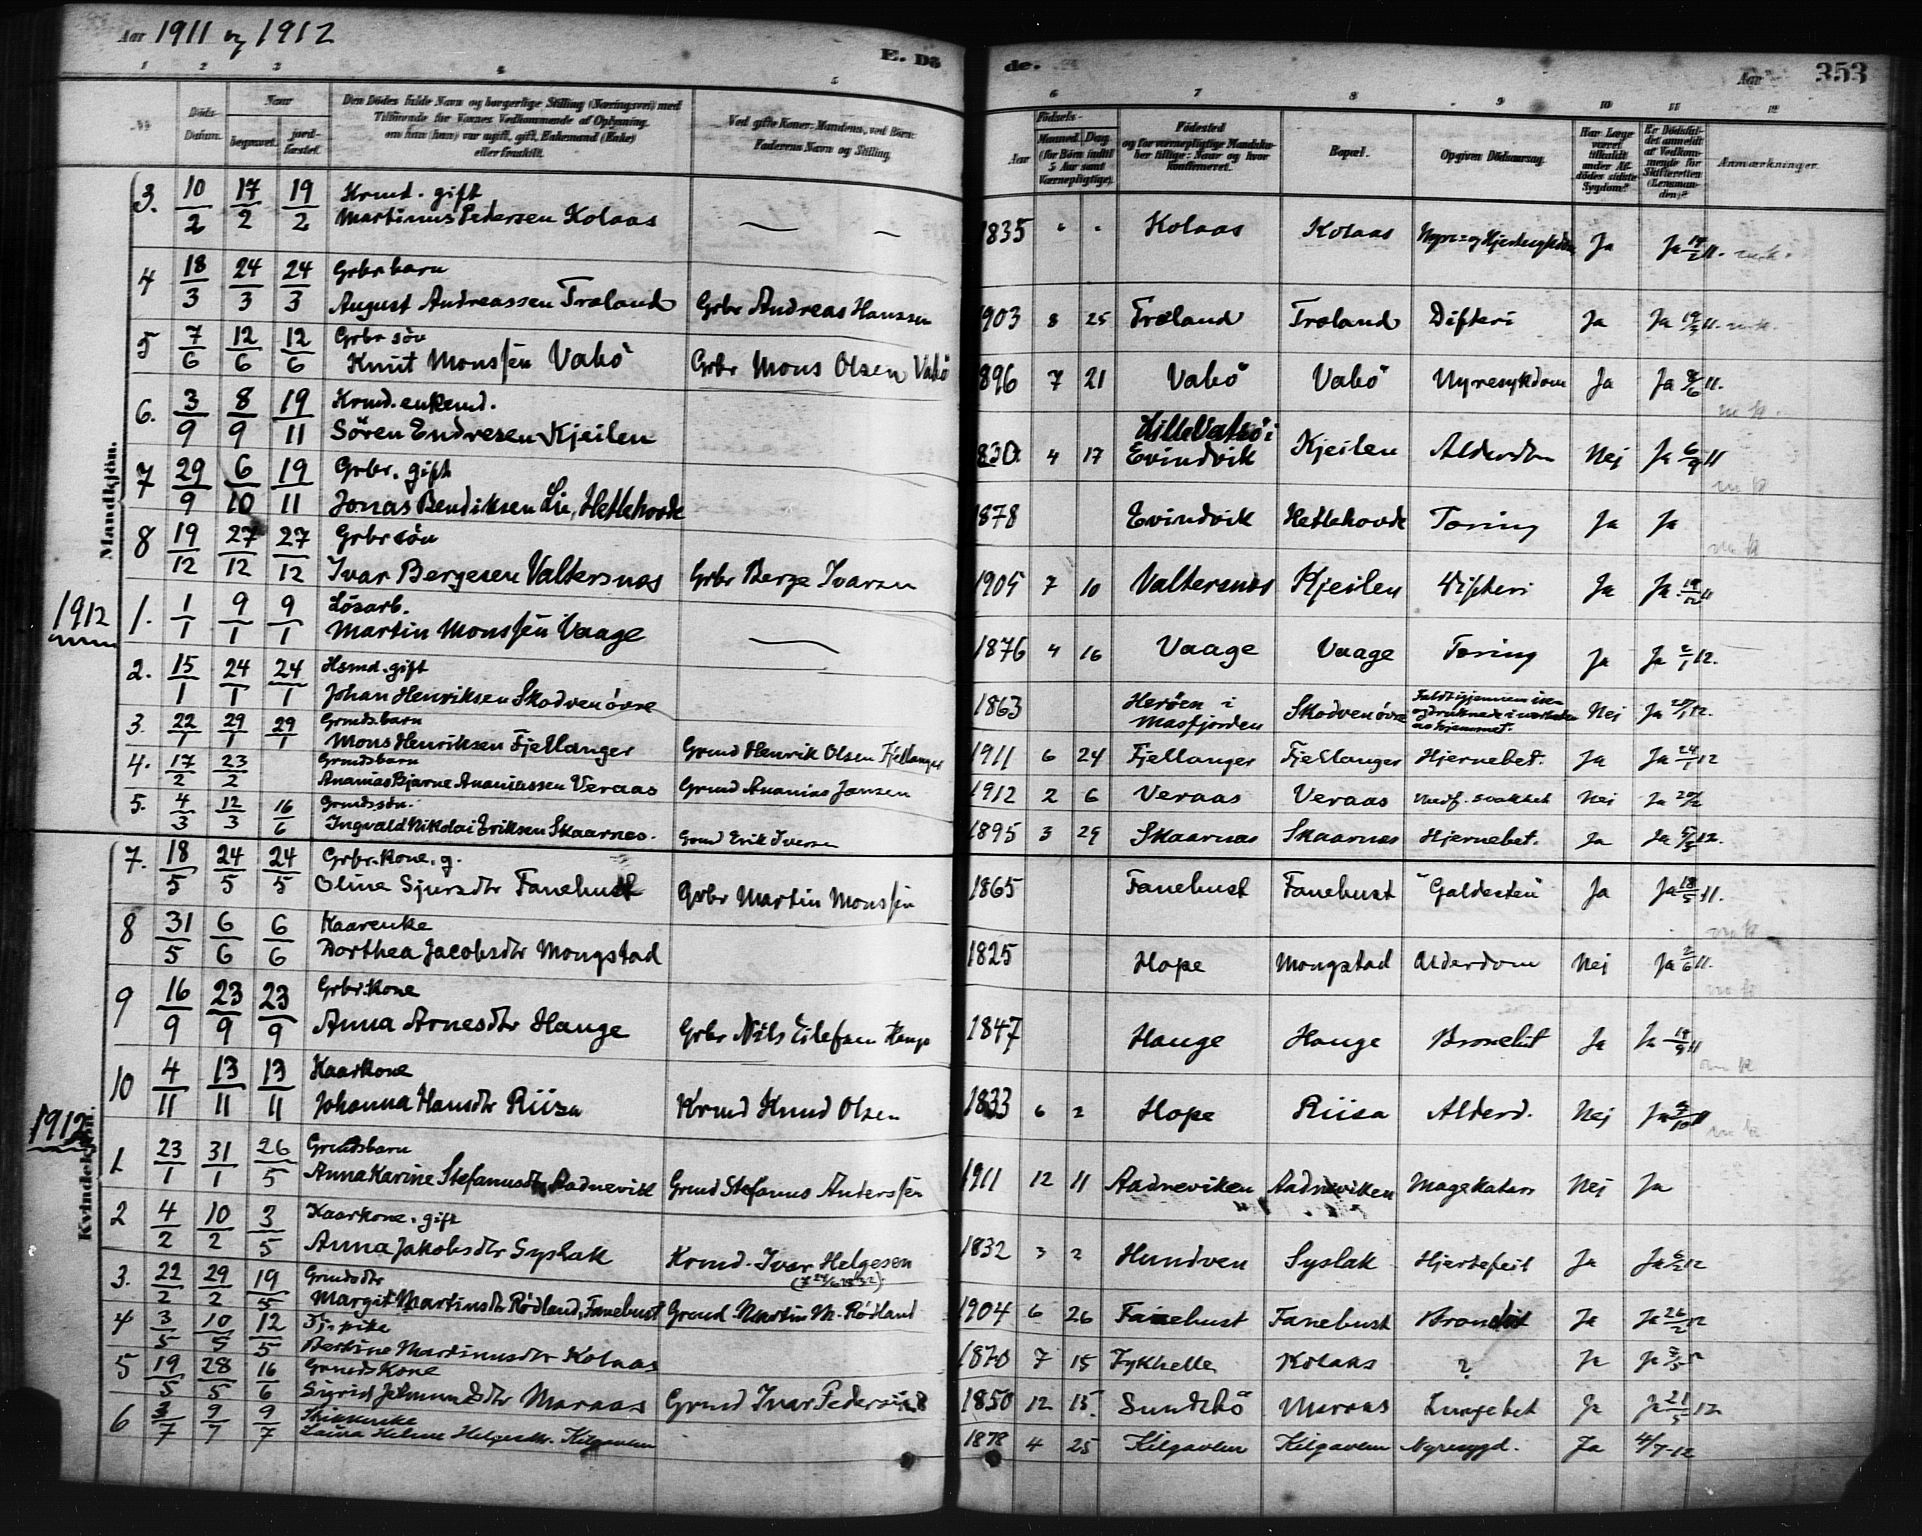 Aar 1911 og 1912
E. Dö
de.
Aar
353
1 2 3 4 5 6 7 8 9 10 11 12
No Döds-Datum. Naar begravet. jord-fæstet. Den Dödes fulde Navn og borgerlige Stilling (Næringsvei) med Tilføiende for Voxnes Vedkommende af Oplysning om han (hun) var ugift, gift, Enkemand (Enke) eller fraskilt. Ved gifte Koner: Mandens, ved Börn: Faderens Navn og Stilling. Födsels- Aar Maaned Dag (for Børn indtil 5 Aar samt Værnepligtige). Födested og for værnepligtige Mandskaber tillige: Naar og hvor konfirmeret. Bopæl. Opgiven Dödsaarsag. Har Læge været tilkaldt under Afdödes sidste Sygdom? Er Dödsfaldet anmeldt af Vedkommende for Skifteretten (Lensmanden)? Anmærkninger.
Mandkjön.
3. 10/2 17/2 19/2 Krmd. gift Martinus Pedersen Kolaas — — 1835 " " Kolaas Kolaas Ja Ja 11. m.k.
4 18/3 24/3 24/3 Grbr barn August Andreassen Træland Grbr Andreas Hanssen 1903 8 25 Træland Træland Difteri Ja Ja 19/3 11. m.k.
5 7/6 12/6 12/6 Grbr søn Knut Monssen Vabö Grbr Mons Olsen Vabö 896 7 21 Vabö Vabö Nyresykdom Ja Ja 8/6 11. m k.
6. 3/9 8/9 19/11 Krmd. enkemd. Sören Endresen Kjeilen 830 4 17 Evindvik Kjeilen Alderdom Nej Ja 6/9 11 m k
7 29/9 6/10 19/11 Grbr. gift Jonas Bendiksen Lie, Hetlehovde 1878 Evindvik Hetlehovde Tæring Ja Ja m k
8 19/12 27/12 27/12 Grbr søn Ivar Bergesen Valtersnæs Grbr Berge Ivarsen 1905 7 10 Valtersnæs Kjeilen Difteri Ja Ja 19/12 11
1912
1. 1/1 9/1 9/1 Lösarb. Martin Monssen Vaage — 1876 4 16 Vaage Vaage Tæring Ja Ja 2/1 12.
2. 15/1 24/1 24/1 Hsmd. gift Johan Henriksen Skodven övre 1863 Heröen i Masfjorden Skodven övre Faldt igjennem isen og druknede i nærheden av hjemmet. Nej Ja 12.
3. 22/1 29/1 29/1 Grmdsbarn Mons Henriksen Fjellanger Grmd Henrik Olsen Fjellanger 1911 6 24 Fjellanger Fjellanger Hjernebet. Ja Ja 24/1 12
4. 17/2 23/2 Grmdsbarn Ananias Bjarne Ananiassen Veraas Grmd Ananias Jansen 1912 2 6 Veraas Veraas Medf. svakhet Nei Ja 20/2
5. 4/3 12/3 16/6 Grmdssøn. Ingvald Nikolai Eriksen Skaarnes. Grmd Erik Iversen 1895 3 29 Skaarnæs Skaarnæs Hjernebet. Ja Ja 5/3 12.
Kvindekjön.
7. 18/5 24/5 24/5 Grbr. kone. g. Oline Sjursdtr Fanebust Grbr Martin Monssen 1865 Fanebust Fanebust "Galdesten" Ja Ja 18/5 11. m k
8 31/5 6/6 6/6 Kaarenke Dorthea Jacobsdtr Mongstad 1825 Hope Mongstad Alderdom Nej Ja 2/6 11. m k
9 16/9 23/9 23/9 Grbr. kone Anna Arnesdtr Hauge Grbr Nils Eilefsen Hauge 1847 Hauge Hauge Bronchit Ja Ja 19/9 11 m k
10 4/11 13/11 13/11 Kaarkone Johanna Hansdtr Riisa Krmd Knud Olsen 1833 6 2 Hope Riisa Alderd. Nej Ja 11 m k
1912
1 23/1 31/1 26/5 Grmdsbarn Anna Karine Stefanusdtr Aadnevik Grmd Stefanus Anderssen 1911 12 11 Aadneviken Aadneviken Magekatarr Nej Ja
2 4/2 10/2 3/5 Kaarkone. gift Anna Jakobsdtr Syslak Krmd. Ivar Helgesen 1832 3 2 Hundven Syslak Hjertefeil Ja Ja 6/2 12
3. 22/2 29/2 19/5 Grmdsdtr Margit Martinsdtr Rödland, Fanebust Grmd Martin M. Rödland 1904 6 26 Fanebust Fanebust Bronchit Ja Ja 26/2 12
4 3/5 10/5 12/5 Tj. pike Bertine Martinusdtr Kolaas 1870 7 15 Fykhelle Kolaas ? Ja Ja
5 19/5 28/5 16/6 Grmds Kone Sigrid Maraas Grmd Ivar Pedersen 1850 12 15 Sundsbö Maraas Lungebet Ja Ja 21/5 12
6 3/7 9/7 9/7 Laura Helene Helgesdtr. Kilgavlen 1878 4 25 Kilgavlen Kilgavlen Nyresygd. Ja 4/7-12